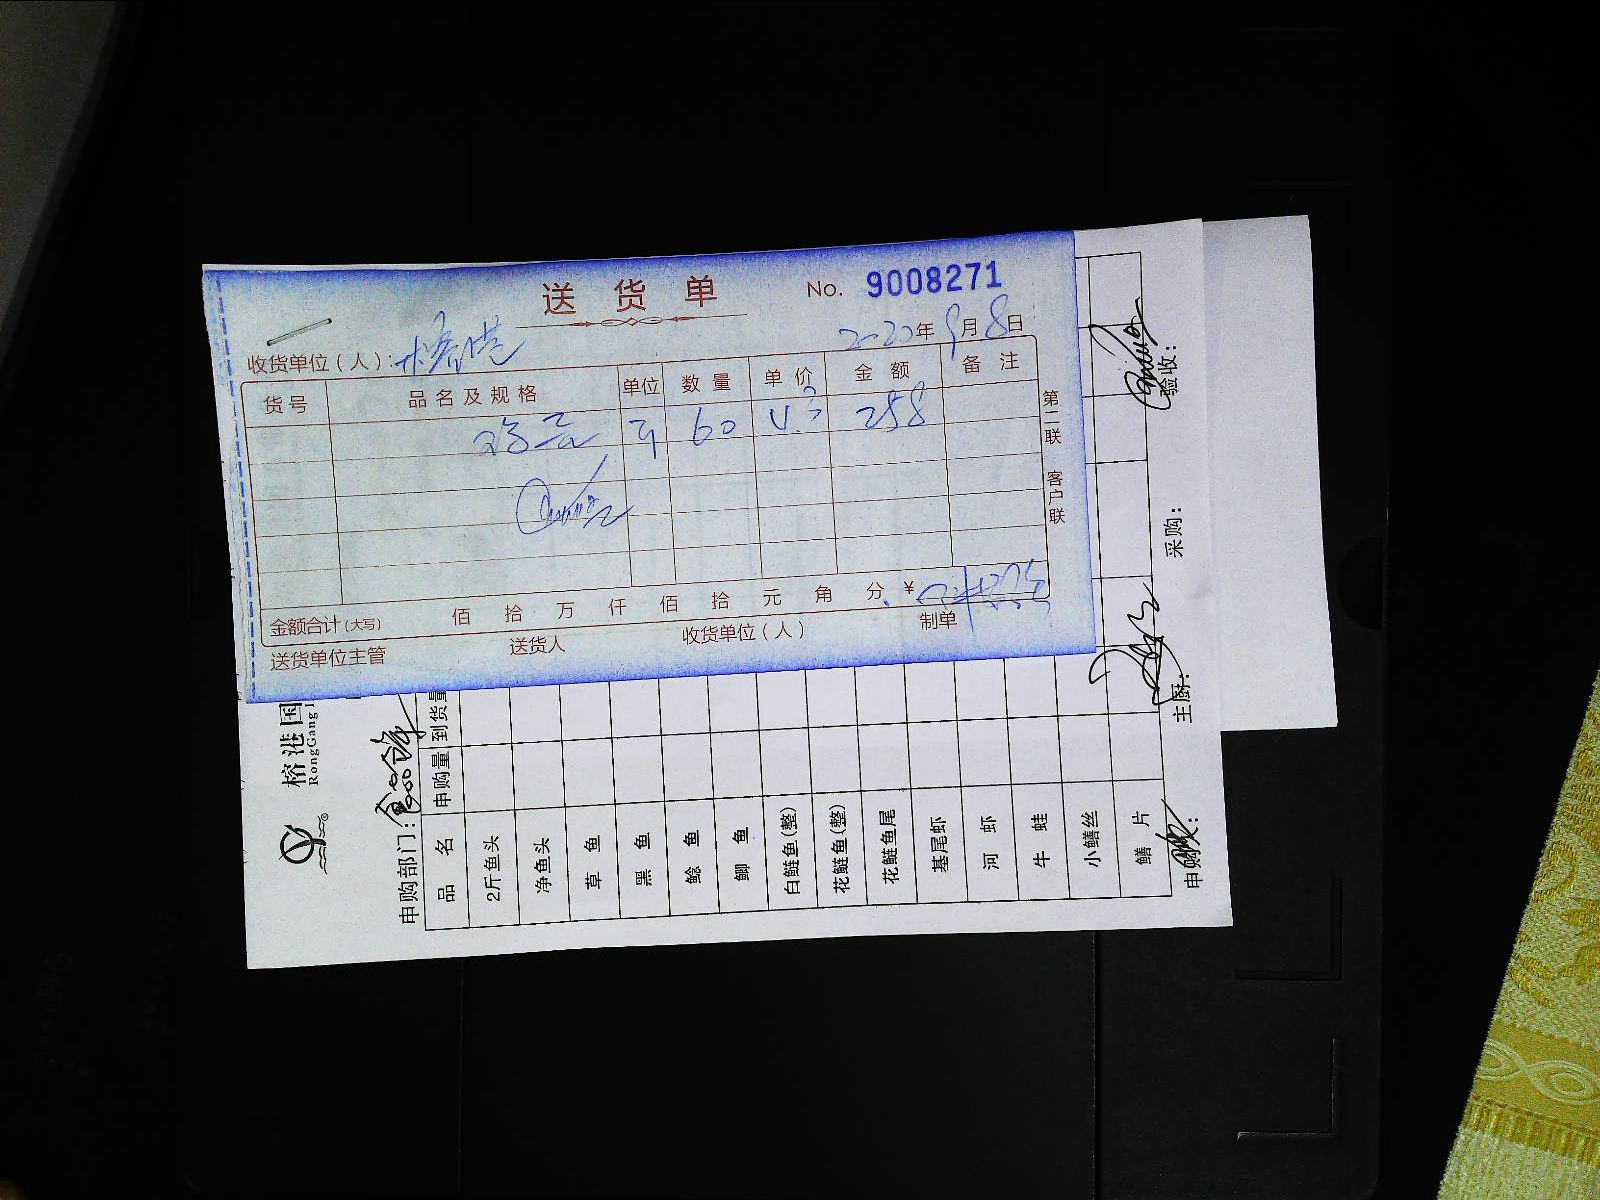 送货单 No. 9008271
收货单位（人）：榕港 2020年9月8日
货号 品名及规格 单位 数量 单价 金额 备注
鸡蛋 斤 60 4.3 258
第二联 客户联
金额合计（大写） 佰 拾 万 仟 佰 拾 元 角 分 ¥
送货单位主管 送货人 收货单位（人） 制单
榕港国
RongGang
申购部门：
品名 申购量 到货量
2斤鱼头
净鱼头
草鱼
黑鱼
鲶鱼
鲫鱼
白鲢鱼(整)
花鲢鱼(整)
花鲢鱼尾
基尾虾
河虾
牛蛙
小鳝丝
鳝片
申购： 主厨： 采购： 验收：